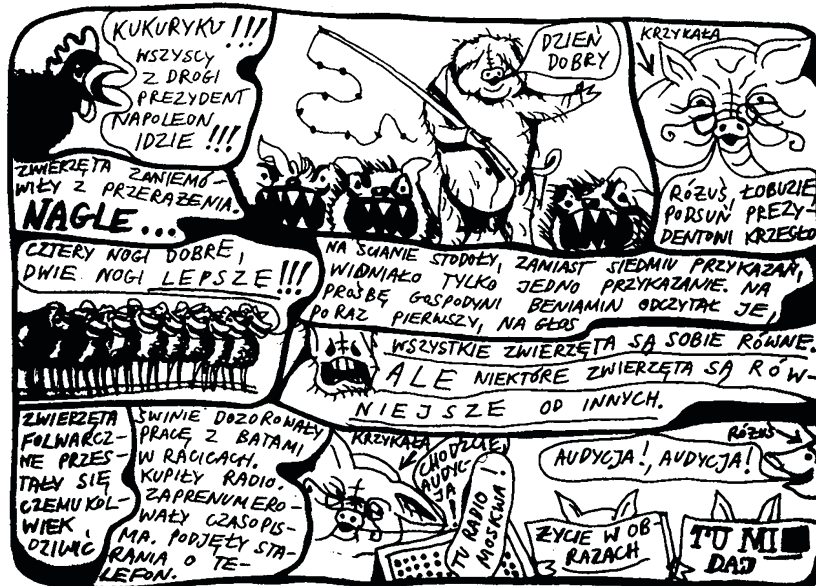 KUKURYKU!!!
WSZYSCY
Z DROGI
PREZYDENT
NAPOLEON
IDZIE!!!
DZIEŃ
DOBRY
KRZYKAŁA
RÓZUŚ, ŁOBUZIE,
PODSUŃ PREZY-
DENTOWI KRZESŁO
ZWIERZĘTA ZANIEMÓ-
WIŁY Z PRZERAŻENIA.
NAGLE...
CZTERY NOGI DOBRE,
DWIE NOGI LEPSZE!!!
NA ŚCIANIE STODOŁY, ZAMIAST SIEDMIU PRZYKAZAŃ,
WIDNIAŁO TYLKO JEDNO PRZYKAZANIE. NA
PROŚBĘ GOSPODYNI BENIAMIN ODCZYTAŁ JE,
PO RAZ PIERWSZY, NA GŁOS
WSZYSTKIE ZWIERZĘTA SĄ SOBIE RÓWNE.
ALE NIEKTÓRE ZWIERZĘTA SĄ RÓW-
NIEJSZE OD INNYCH.
ZWIERZĘTA
FOLWARCZ-
NE PRZES-
TAŁY SIĘ
CZEMUKOL-
WIEK
DZIWIĆ
ŚWINIE DOZOROWAŁY
PRACĘ Z BATAMI
W RACICACH.
KUPIŁY RADIO.
ZAPRENUMERO-
WAŁY CZASOPIS-
MA. PODJĘŁY STA-
RANIA O TE-
LEFON.
KRZYKAŁA
CHODŹCIE,
AUDYC-
JA!
TU RADIO
MOSKWA!
AUDYCJA!, AUDYCJA!
RÓZUŚ
ŻYCIE W OB-
RAZACH
TU MI
DAJ